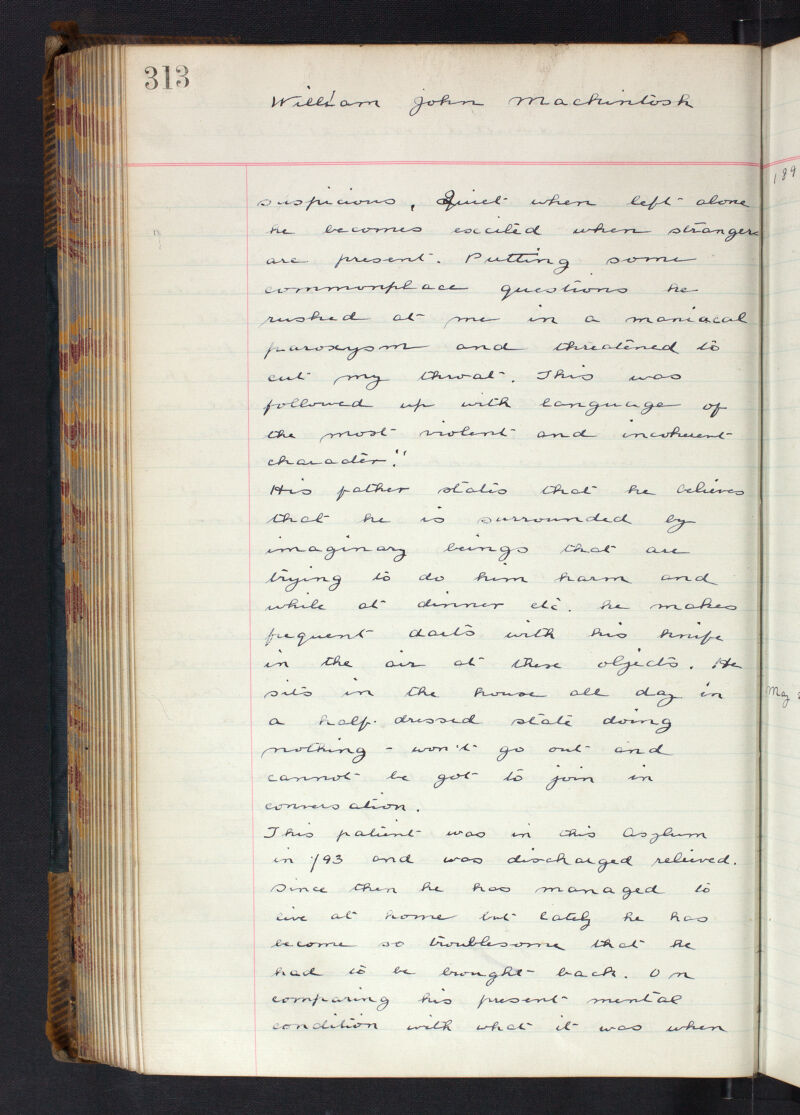 313
William John Mackintosh
suspicious, Quiet when left alone
he becomes excited when strangers
are present. Putting some
commonplace questions he
rushed at me in a maniacal
paroxysm and threatened to
cut my throat. This was
followed up with language of
the most violent and incoherent
character."
His father states that he believes
that he is surrounded by
imaginary beings that are
trying to do him harm and
while at dinner etc. he makes
frequent darts with his knife
in the air at these objects. He
sits in the house all day in
a half-dressed state doing
nothing - won't go out and
cannot be got to join in
conversation.
This patient was in this Asylum
in /93 and was discharged relieved.
Since then he has managed to
live at home but lately he has
become so troublesome that he
had to be brought back. On
comparing his present mental
condition with what it was when
189
May